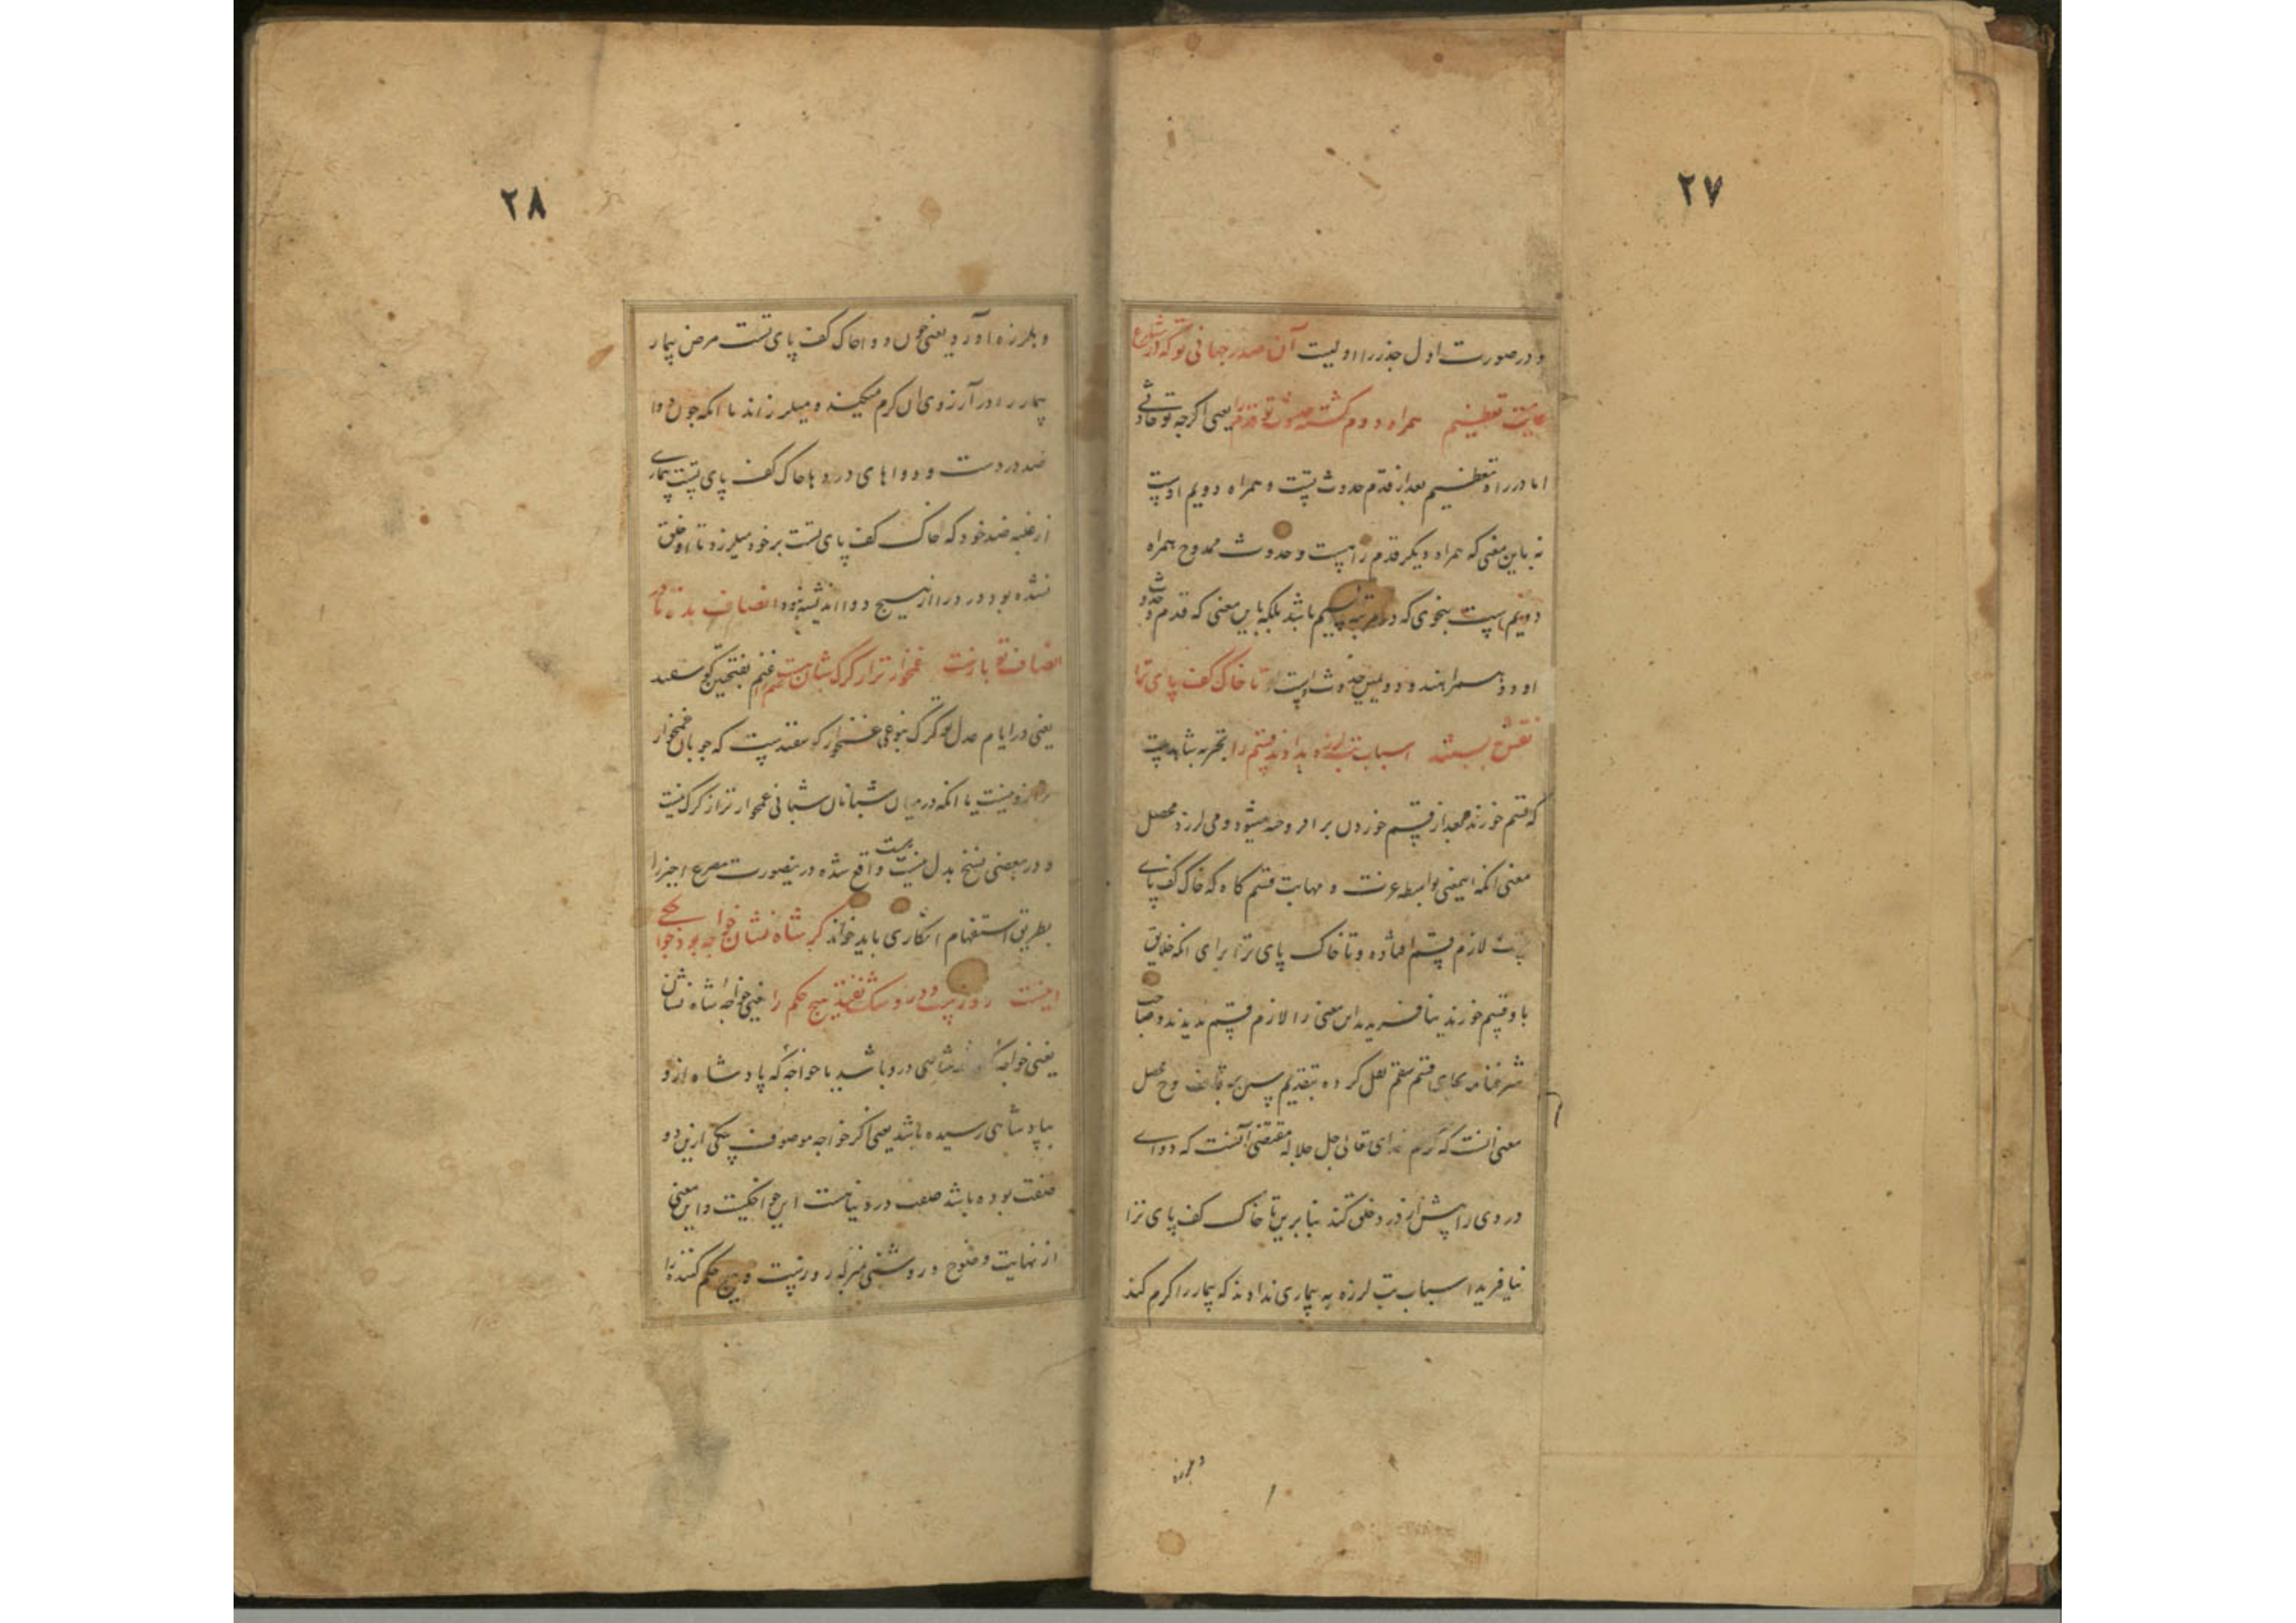 ۲۷
و در صورت اول جذر را اولیت آن صدر جهانی تو که در شارع
تعظیم همراه دوم گشته حدوث تو قدم را یعنی اگرچه تو حادثی
اما در راه تعظیم بعد از قدم حدوث تست و همراه دویم اوست
نه باین معنی که همراه دیگر قدم راهست و حدوث ممدوح همراه
دویم است بنحوی که در مرتبه سیم باشد بلکه باین معنی که قدم و حدوث
او دو همراهند و دویمین حدوث است تا خاک کف پای ترا
نقش نبستند اسباب تب لرزه ندادند قسم را بتجربه شاهدست
که قسم خورنده بعد از قسم خوردن برافروخته میشود و می لرزد محصل
معنی آنکه اینمعنی بواسطه عزت و مهابت قسم گاه که خاک کف پای
تست لازم قسم افتاده و تا خاک پای ترا برای انکه خلایق
باو قسم خورند نیافریدند این معنی را لازم قسم ندیدند و صاحب
شرفنامه بجای قسم سقم نقل کرده بتقدیم سین بر قاف و محصل
معنی آنست که کرم خدای تعالی جل جلاله مقتضی آنست که دوای
دردی را پیش از درد خلق کند بنابرین تا خاک کف پای ترا
نیافرید اسباب تب لرزه به بیماری ندادند که بیمار را گرم کند
و بلرزه
۲۸
و بلرزه آورد یعنی چون دوا خاک کف پای تست مرض بیمار
بیمار را در آرزوی آن گرم میکند و میلرزاند یا انکه چون دوا
ضد دردست و دواهای دردها خاک کف پای تست بیماری
از غلبه ضد خود که خاک کف پای تست بر خود میلرزد تا او خلق
نشده بود درد را از هیچ دوا اندیشه نبود انصاف بده تا در
انصاف تو بازست غمخوارتر از گرگ شبان نیست غنم را غنم بفتحین گوسفند
یعنی در ایام عدل تو گرگ بنوعی غمخوار گوسفندست که چوپان غمخوار
تر ازو نیست یا انکه در میان شبانان شبانی غمخوارتر از گرگ نیست
و در بعضی نسخ بدل نیست هست واقع شده درینصورت مصرع اخیر را
بطریق استفهام انکاری باید خواند گر شاه نشان خواجه بود خواجگی
اینست روزیست در و شک نفتد هیچ حکم را یعنی خواجه شاه نشان
یعنی خواجه شاهی درو باشد یا خواجه که پادشاه ازو
بپادشاهی رسیده باشد یعنی اگر خواجه موصوف بیکی ازین دو
صفت بوده باشد صفت در دنیا هست این خواجگیست و این معنی
از نهایت وضوح و روشنی بمنزله روزیست و هیچ حکم کننده را